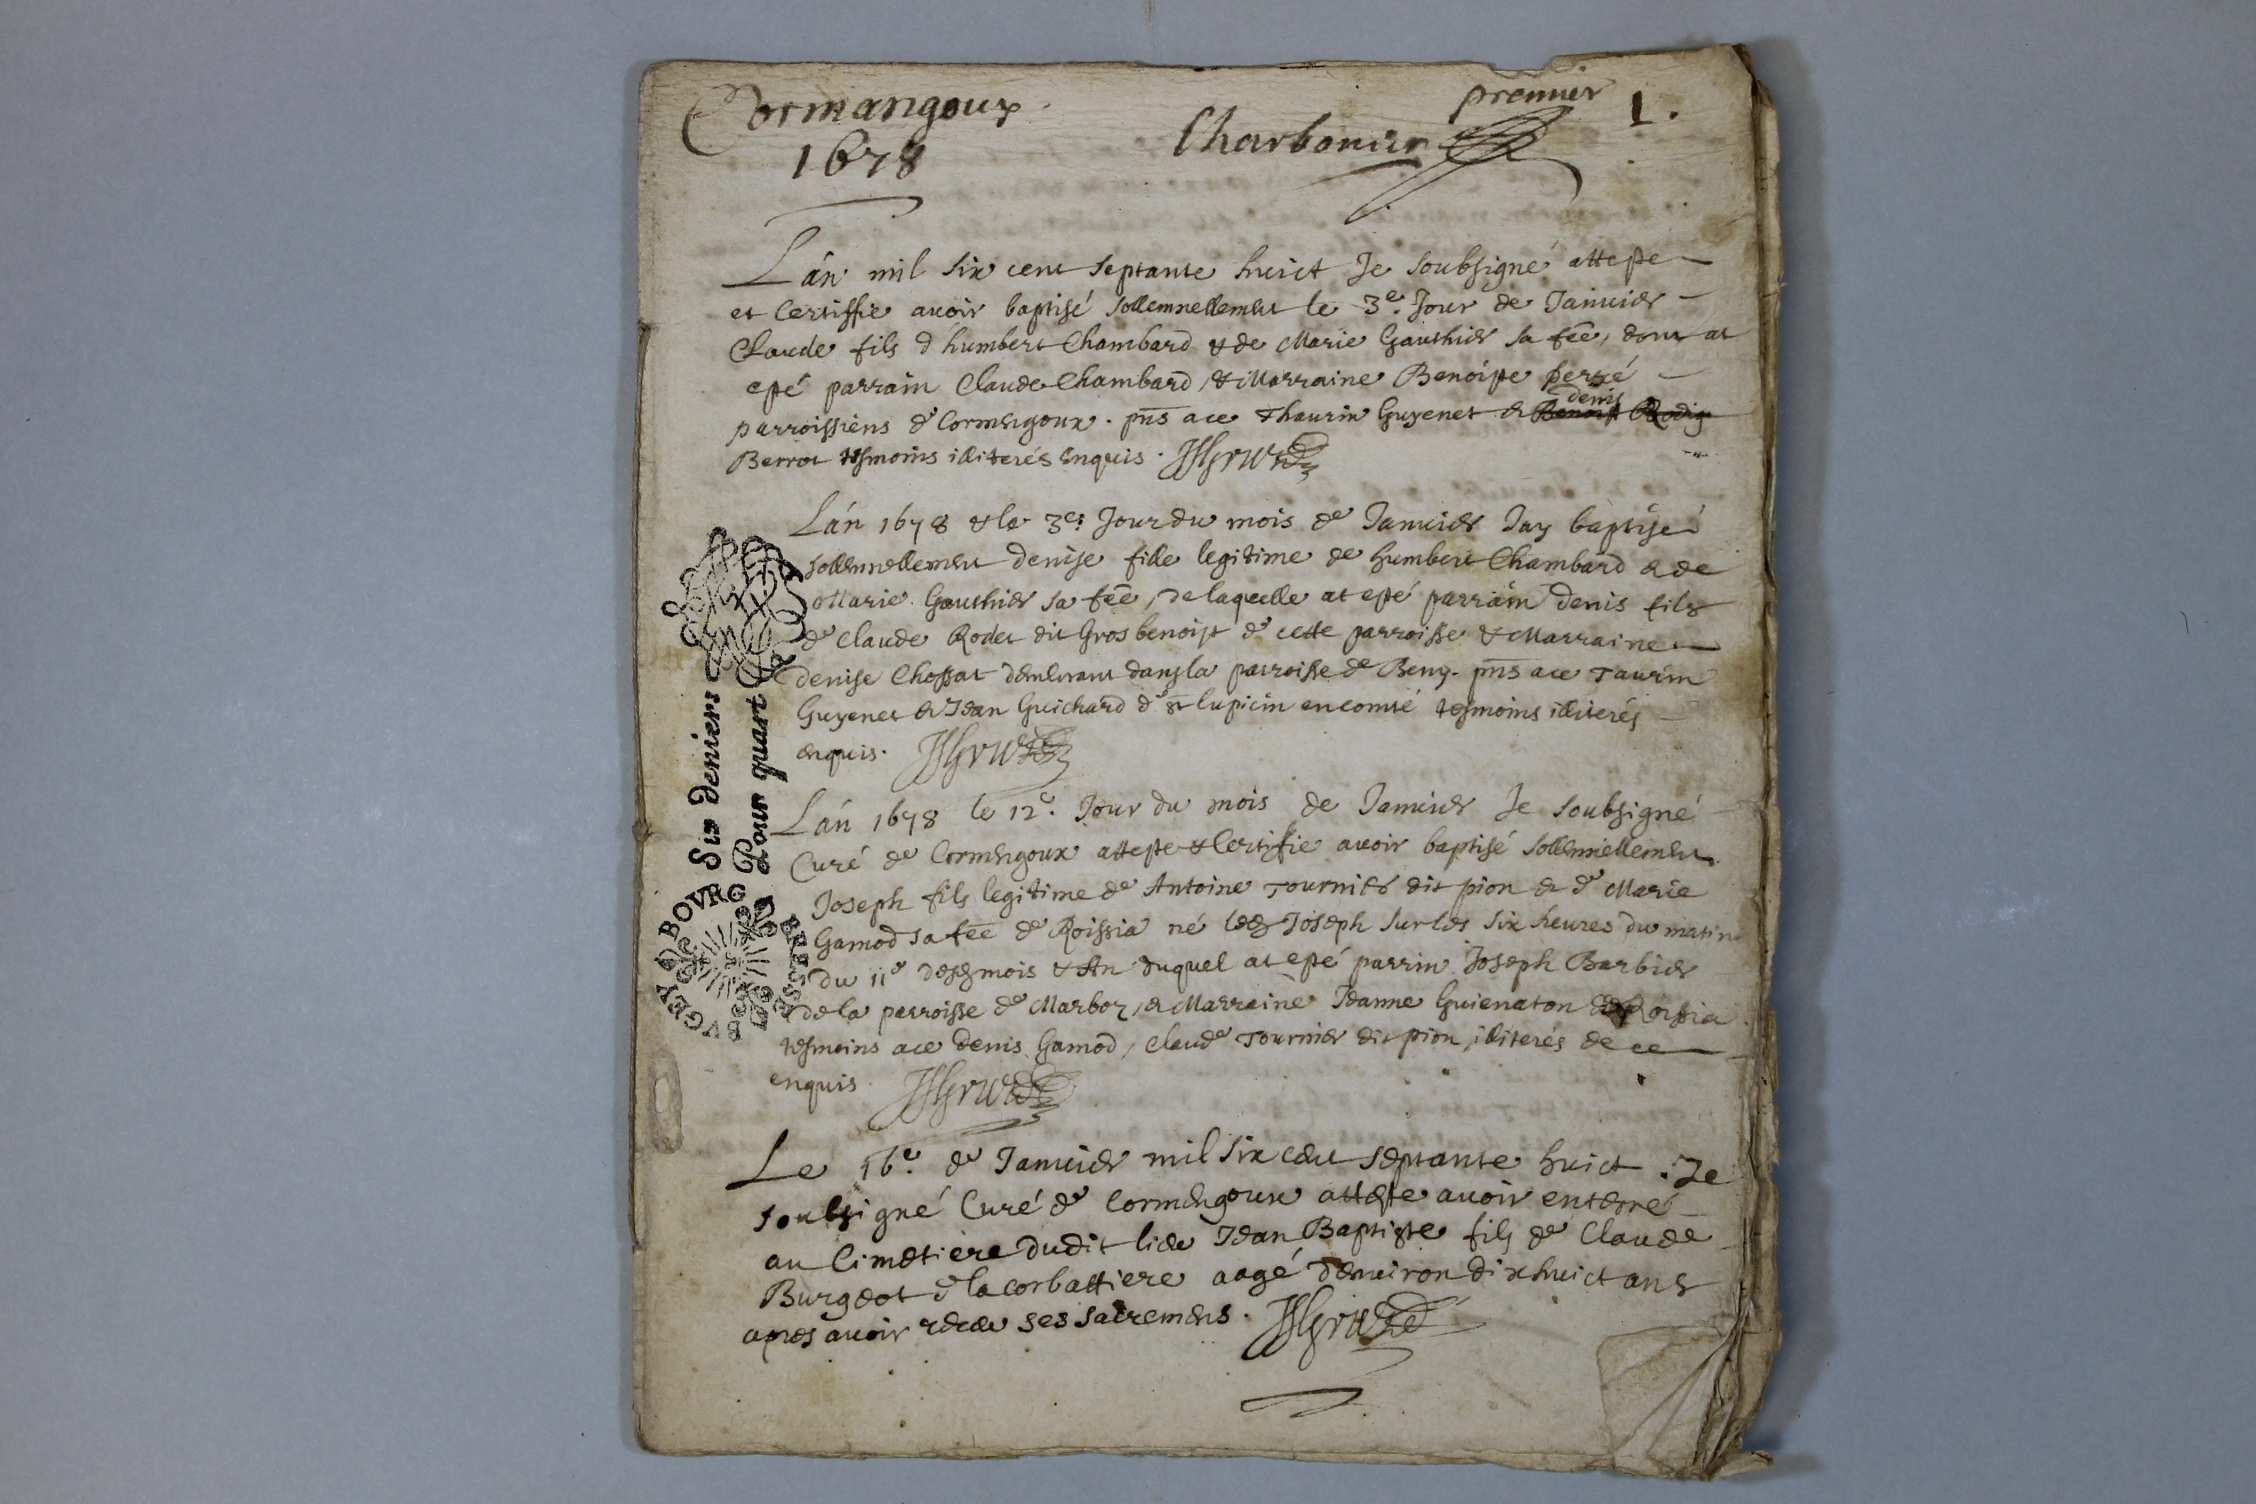 Cormangoux
premier
1.
1678
Charbonier
Lán mil six cent septante huict Je soubsigné atteste
et Certiffie auoir baptisé sollemnellement le 3e. Jour de Januier
Claude fils d'humbert Chambard & de Marie Gauthier sa fēe, dont at
esté parrain Claude Chambard, & Marraine Benoiste
denis
parroissiens de Cormengoux. pn̄s a ce Thaurin Guyenet & Benoist
Berrot tesmoins illiterés enquis.
Lán 1678 & le 3e: Jour du mois de Januier Jay baptisé
sollennellement denise fille legitime de humbert Chambard & de
Marie Gauthier sa fēe, de laquelle at esté parrain denis fils
de Claude Rodet dit Gros benoist de cette parroisse & Marraine
denise Chossat demeurant dans la parroisse de Beny. pn̄s a ce Taurin
Guyenet & Jean Guichard de st lupicin en comté tesmoins illiterés
enquis.
Lán 1678 le 12e. Jour du mois de Januier Je soubsigné
Curé de Cormengoux atteste & Certifie auoir baptisé sollennellement
Joseph fils legitime de Antoine Tournier dit pion & de Marie
Gamod sa fēe de Roissia né led Joseph sur les six heures du matin
du 11e desd mois & An duquel at esté parrin Joseph Barbier
de la parroisse de Marboz, & Marraine Jeanne Guienaton de Roissia
tesmoins a ce Denis Gamod, Claude Tournier dit pion, illiterés de ce
enquis.
Le 16e. de Januier mil six cent septante huict. Je
soubsigné Curé de Cormengoux atteste auoir enterré
au Cimetiere dudit lieu Jean Baptiste fils de Claude
Burgeot de la corbattiere aagé d'enuiron dix huict ans
apres auoir receu ses sacremens.
Six deniers
Pour quart
BRESSE BVGEY BOVRG